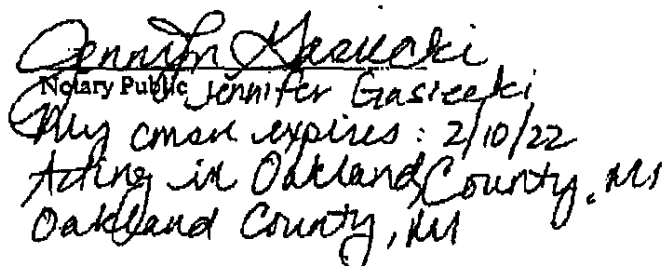 Jennifer Gasiecki
Notary Public Jennifer Gasiecki
My cmsn expires: 2/10/22
Acting in Oakland County, MI
Oakland County, MI